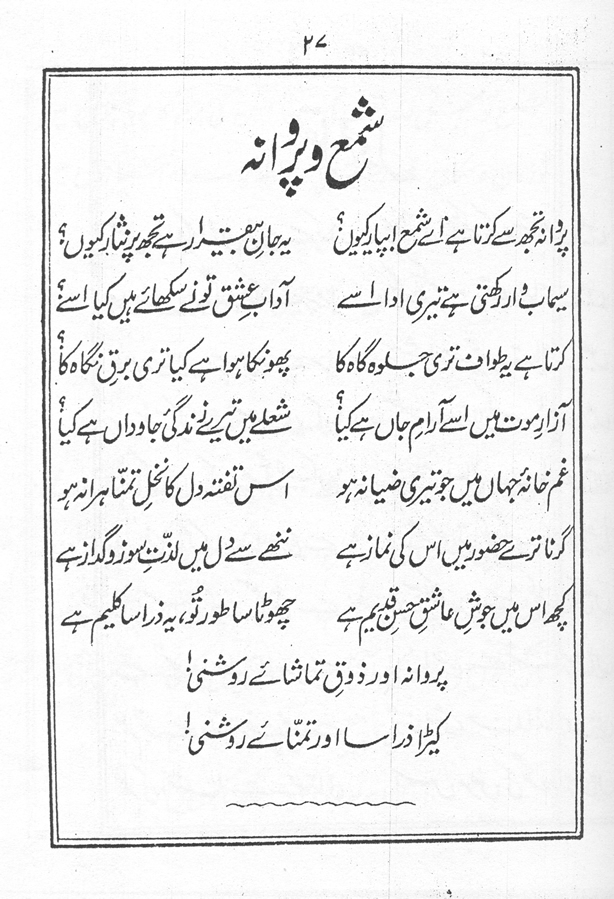 ۲۷
شمع و پروانہ
پروانہ تجھ سے کرتا ہے اے شمع! پیار کیوں؟ یہ جانِ بیقرار ہے تجھ پر نثار کیوں؟
سیماب وار رکھتی ہے تیری ادا اسے آدابِ عشق تو نے سکھائے ہیں کیا اسے؟
کرتا ہے یہ طواف تری جلوہ گاہ کا پھونکا ہوا ہے کیا تری برقِ نگاہ کا؟
آزارِ موت میں اسے آرامِ جاں ہے کیا؟ شعلے میں تیرے زندگیٔ جاوداں ہے کیا؟
غم خانۂ جہاں میں جو تیری ضیا نہ ہو اس تفتہ دل کا نخلِ تمنّا ہرا نہ ہو
گرنا ترے حضور میں اس کی نماز ہے ننھے سے دِل میں لذّتِ سوز و گداز ہے
کچھ اس میں جوشِ عاشقِ حسنِ قدیم ہے چھوٹا سا طور تُو، یہ ذرا سا کلیم ہے
پروانہ اور ذوقِ تماشائے روشنی!
کیڑا ذرا سا اور تمنّائے روشنی!